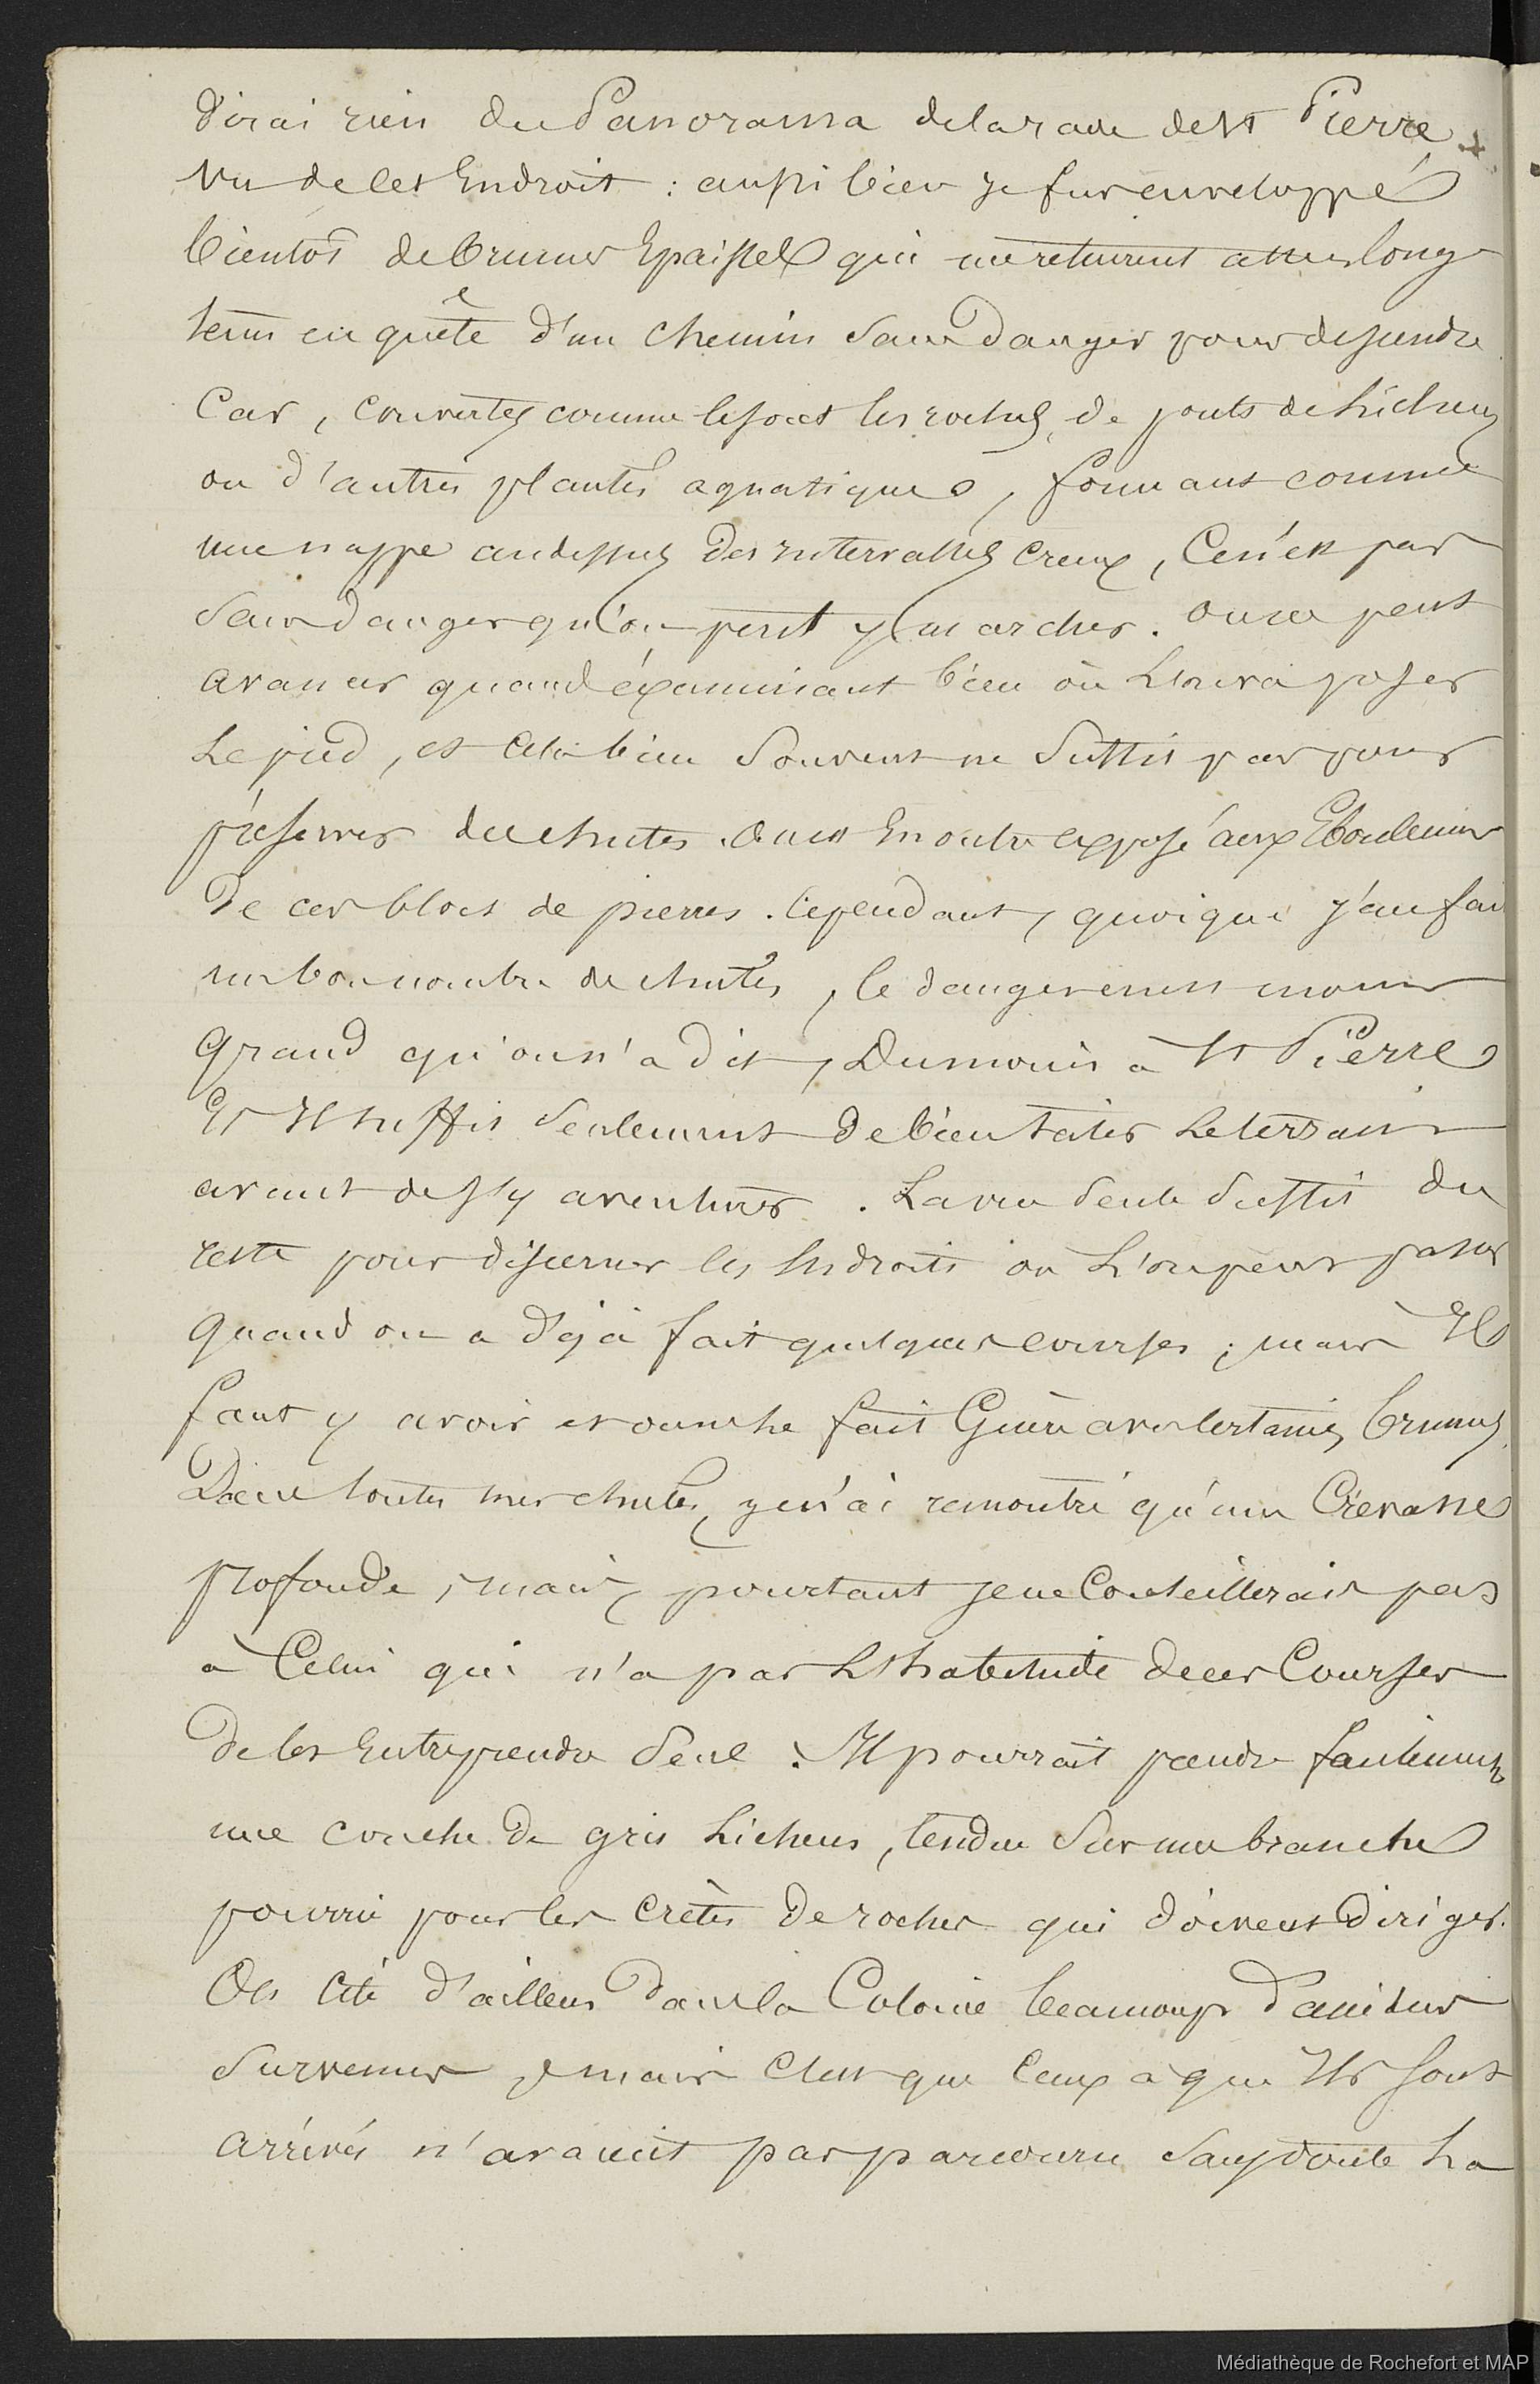 dirai rien du Panorama de la rade de St Pierre
vu de cet Endroit : aussi bien je fus enveloppé
bientôt de brumes Epaisses qui me retinrent assez long
tems en quête d'un chemin sans danger pour descendre
Car, couvertes comme le sont les roches, de ponts de Lichens
ou d'autres plantes aquatiques, formant comme
une nappe au dessus des intervalles creux, Ce n'est pas
sans danger qu'on peut y marcher. on ne peut
avancer qu'en éxaminant bien où L'on va poser
Le pied, et Cela bien souvent ne suffit pas pour
préserver de chutes. On est En outre exposé aux Eboulemens
de ces blocs de pierres. Cependant, quoique j'aie fai
un bon nombre de chutes, le danger en est moins
Grand qu'on n'a dit, Du moins à St Pierre
Et Il suffit seulement de bien tâter Le terrain
avant de s'y aventurer. La vue seule suffit du
reste pour discerner les Endroits où L'on peut passer
quand on a déjà fait quelques courses ; mais Il
faut y avoir et on ne le fait Guère avec certaines brumes.
Dans toutes mes chutes, je n'ai rencontré qu'une Crevasse
profonde, mais pourtant je ne Conseillerais pas
à Celui qui n'a pas L'habitude de ces Courses
de les Entreprendre seul. Il pourrait prendre facilement
une couche de gris Lichens, tendue sur une branche
pourrie pour les crêtes de roches qui doivent diriger.
On Cite d'ailleurs dans la Colonie beaucoup d'accidens
survenus, mais C'est que Ceux à qui Ils sont
arrivés n'avaient pas parcouru sans doute La
Médiathèque de Rochefort et MAP